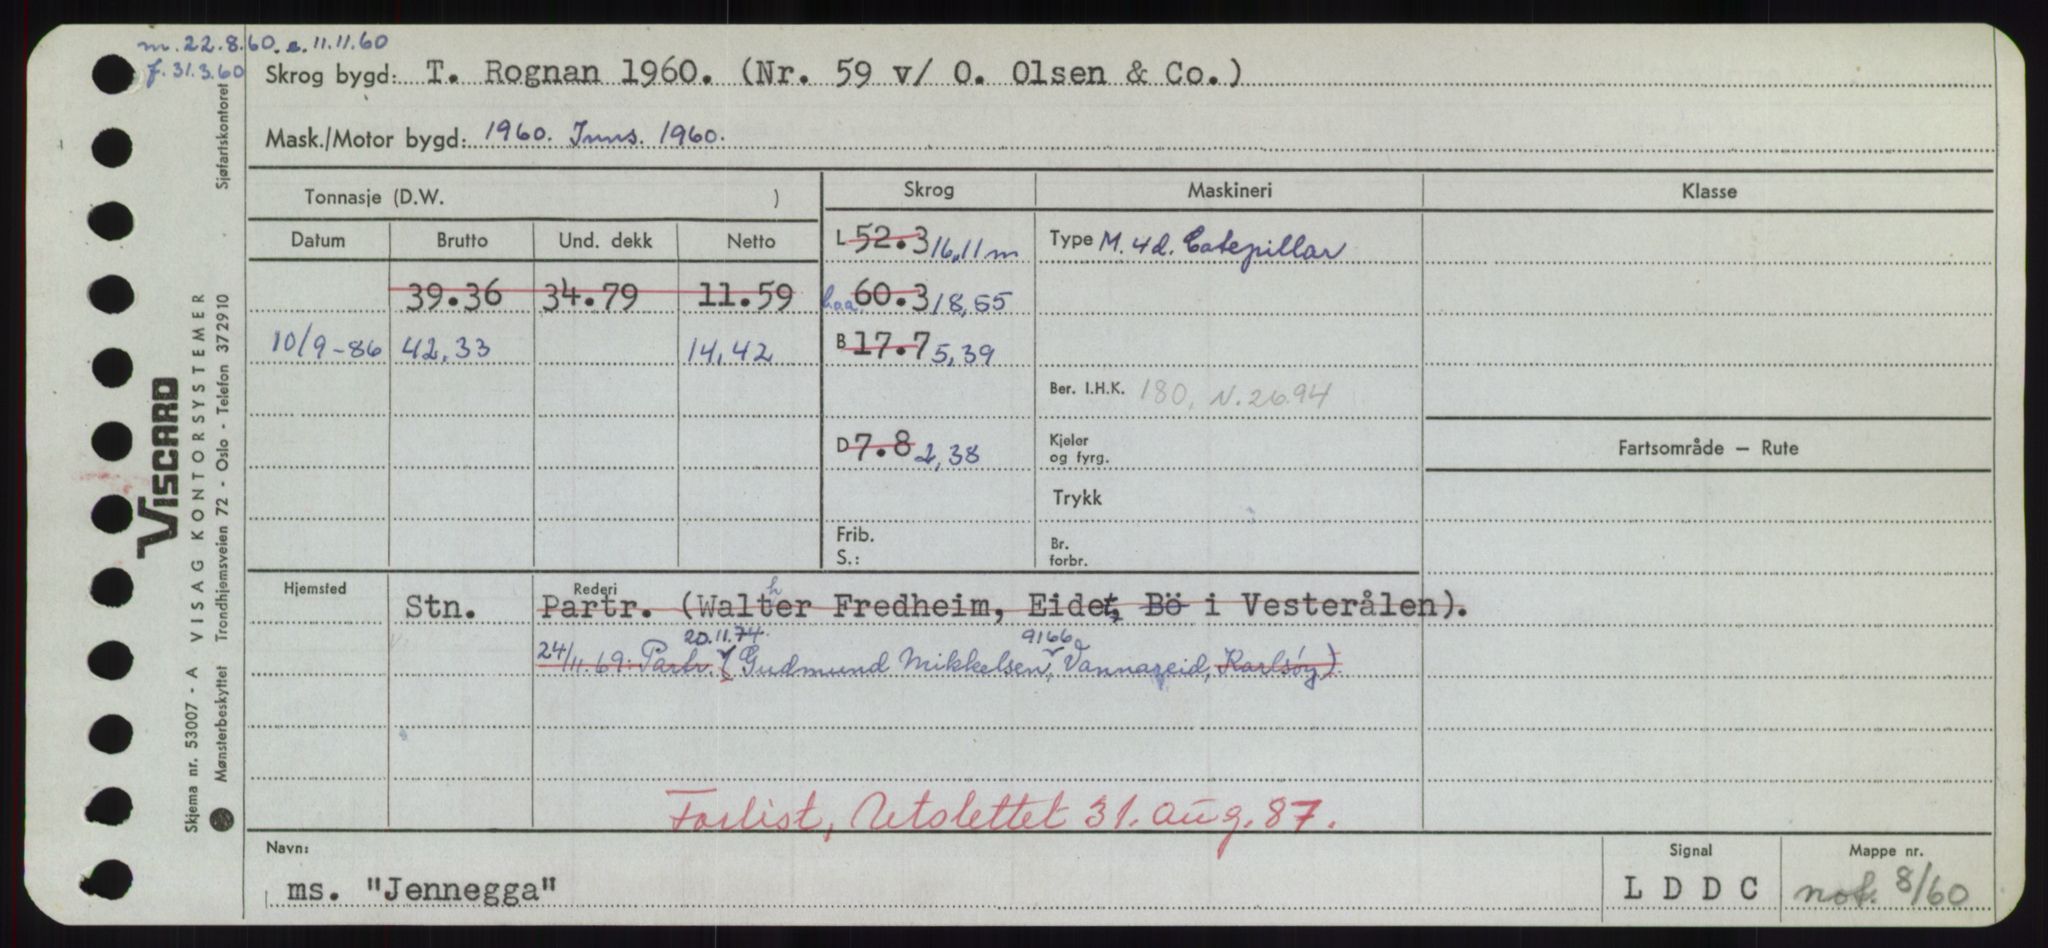 m. 22.8.60. e. 11.11.60
f. 31.3.60
Skrog bygd: T. Rognan 1960. (Nr. 59 v/ O. Olsen & Co.)
Mask./Motor bygd: 1960. Inns. 1960.
Tonnasje (D.W. )
Skrog Maskineri Klasse
Datum Brutto Und. dekk Netto
L 52.3 16,11 m Type M. 4d. Catepillar
39.36 34.79 11.59 Loa 60.3 18,55
10/9-86 42,33 14,42 B 17.7 5,39
Ber. I.H.K. 180, N. 26.94
D 7.8 2,38 Kjeler og fyrg. Fartsområde — Rute
Trykk
Frib. S.: Br. forbr.
Hjemsted Rederi
h
Stn. Partr. (Walter Fredheim, Eidet, Bö i Vesterålen).
20.11.74. 9166
24/11.69: Partr. (Gudmund Mikkelsen, Vannareid, Karlsøy)
Forlist, Utslettet 31. aug. 87.
Navn: Signal Mappe nr.
ms. "Jennegga" L D D C not. 8/60
Sjøfartskontoret
VISCARD
Skjema nr. 53007 - A VISAG KONTORSYSTEMER
Mønsterbeskyttet Trondhjemsveien 72 - Oslo - Telefon 37 29 10